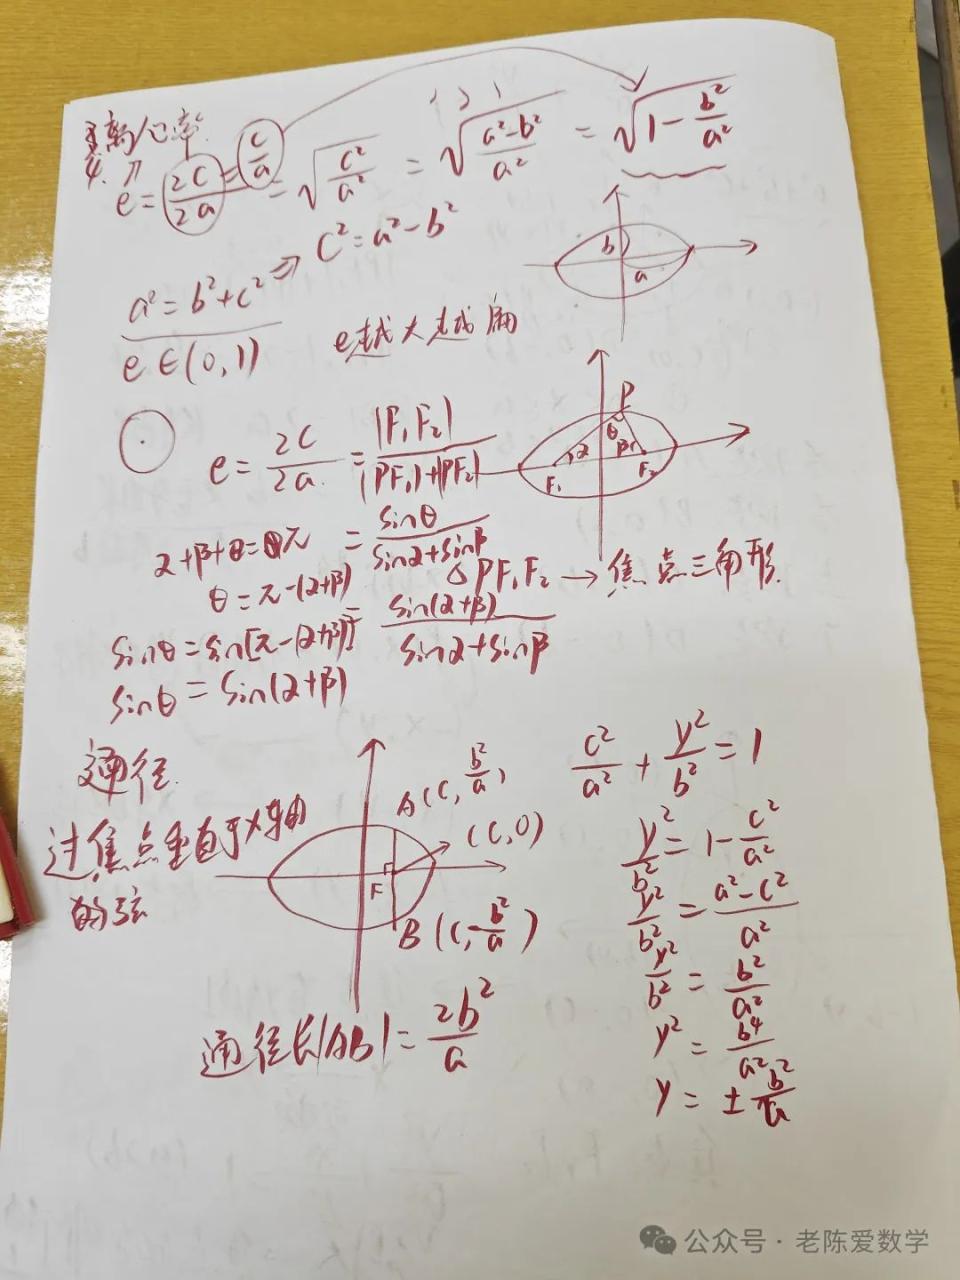 4. 离心率
e = 2c/2a = c/a = √(c²/a²) = √((a²-b²)/a²) = √(1-b²/a²)
a² = b²+c² ⇒ c² = a²-b²
e∈(0,1) e越大越扁
b
a
e = 2c/2a = |F₁F₂|/(|PF₁|+|PF₂|)
P
θ
α
β
F₁
F₂
α+β+θ=π
= sinθ/(sinα+sinβ)
θ=π-(α+β)
△PF₁F₂ → 焦点三角形
sinθ=sin[π-(α+β)]
= sin(α+β)/(sinα+sinβ)
sinθ = sin(α+β)
通径
过焦点垂直于x轴
的弦
A(c, b²/a)
(c,0)
F
B(c,-b²/a)
通径长|AB| = 2b²/a
c²/a² + y²/b² = 1
y²/b² = 1-c²/a²
y²/b² = (a²-c²)/a²
y²/b² = b²/a²
y² = b⁴/a²
y = ±b²/a
公众号·老陈爱数学